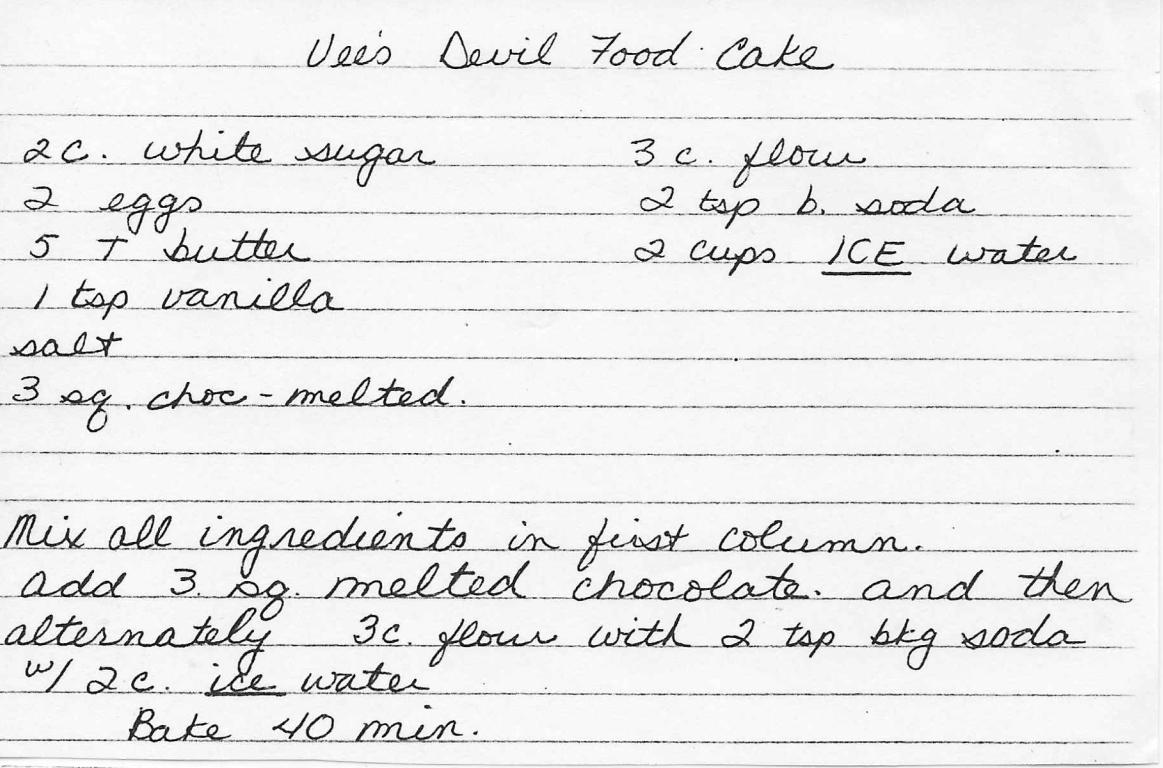 Vee's Devil Food Cake
2 c. white sugar
2 eggs
5 T butter
1 tsp vanilla
salt
3 sq. choc - melted.
3 c. flour
2 tsp b. soda
2 cups ICE water
Mix all ingredients in first column.
add 3 sq. melted chocolate. and then
alternately 3c. flour with 2 tsp bkg soda
w/ 2 c. ice water
Bake 40 min.